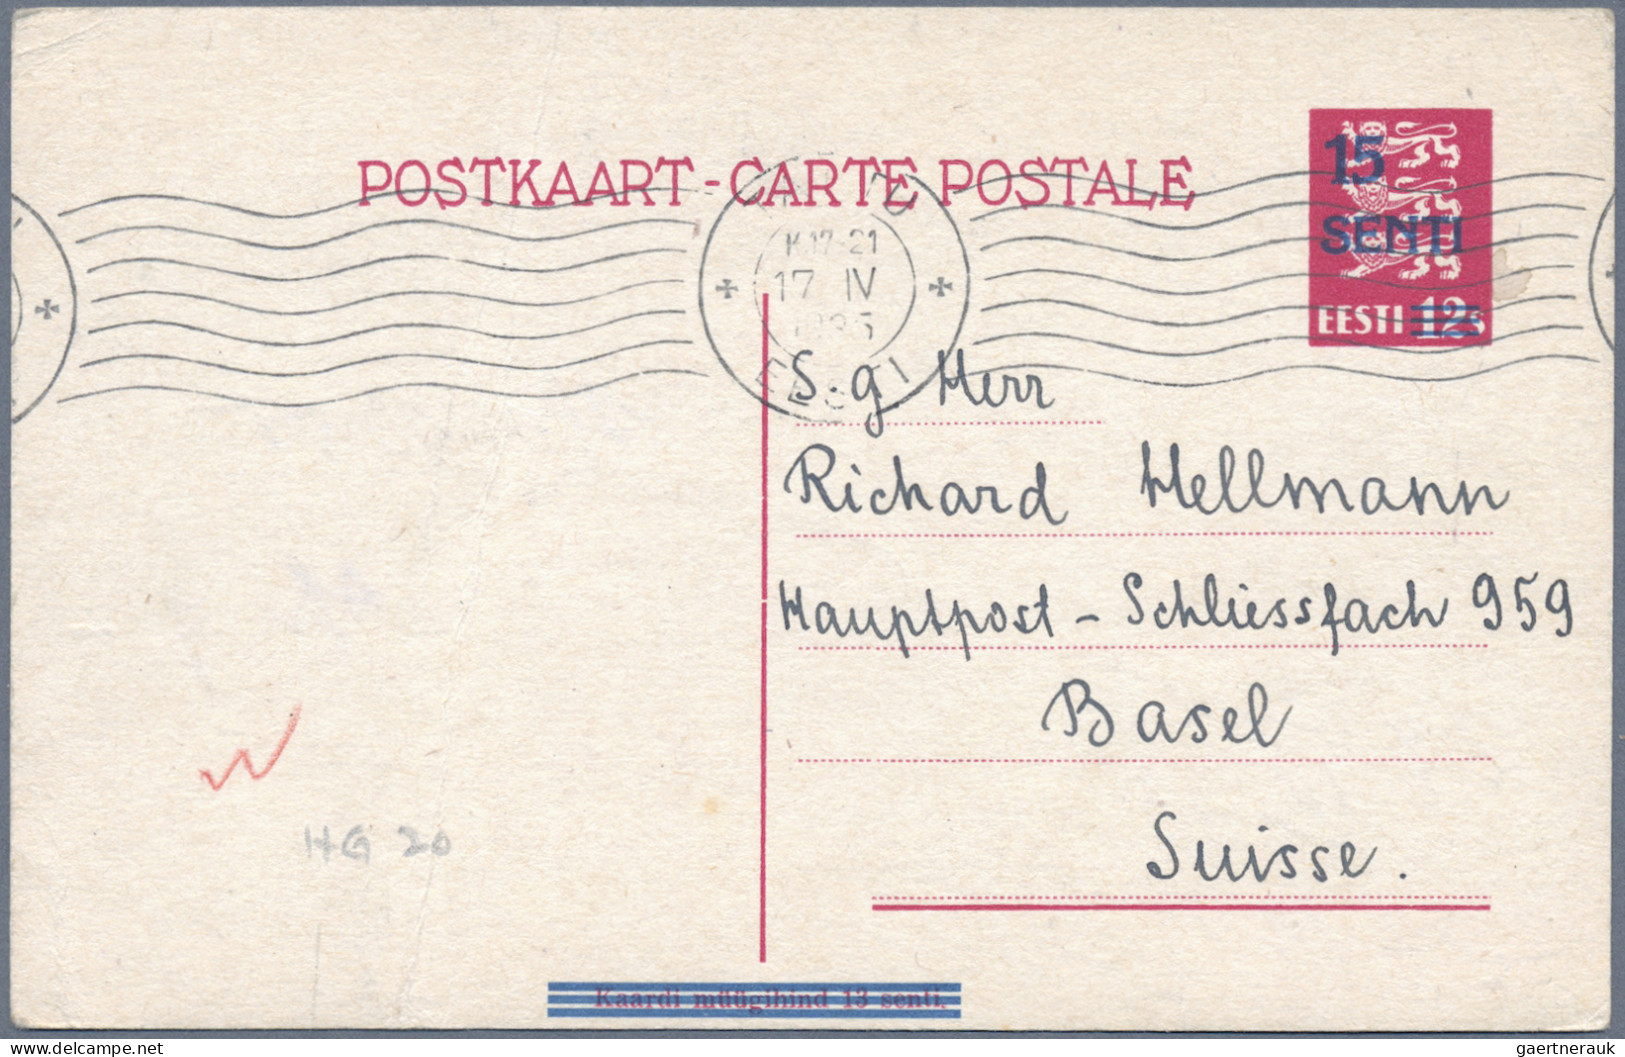 POSTKAART - CARTE POSTALE
15
SENTI
EESTI 12s
K.17-21
17 IV
EESTI
S.g Herr
Richard Hellmann
Hauptpost - Schliessfach 959
Basel
Suisse.
HG 20
Kaardi müügihind 13 senti.
delcampe.net
gaertnerauk